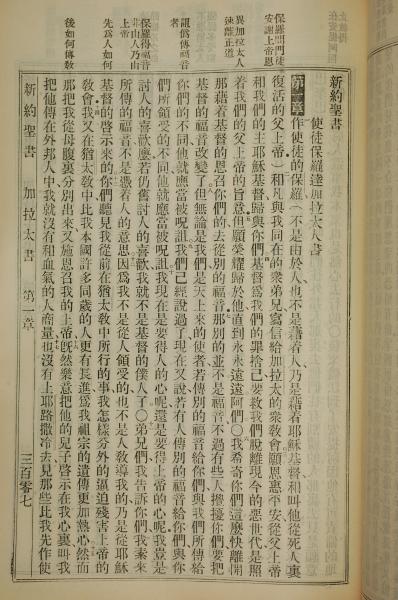 新約聖書
使徒保羅達加拉太人書
第一章 作使徒的保羅(不是由於人也不是藉着人乃是藉着耶穌基督和叫他從死人裏
復活的父上帝)和凡與我同在的衆弟兄寫信給加拉太的衆敎會願恩惠平安從父上帝
和我們的主耶穌基督歸與你們基督爲我們的罪捨己要救我們脫離現今的惡世代是照
着我們的父上帝的旨意但願榮耀歸於他直到永永遠遠阿們○我希奇你們這麼快離開
那藉着基督的恩召你們的去從別的福音那別的並不是福音不過有些人攪擾你們要把
基督的福音改變了但無論是我們是天上來的使者若傳別的福音給你們與我們所傳給
你們的不同他就應當被呪詛我們已經說過了現在又說若有人傳別的福音給你們與你
們所領受的不同他就應當被呪詛我現在是要得人的心呢還是要得上帝的心呢我豈是
討人的喜歡麼若仍舊討人的喜歡我就不是基督的僕人了○弟兄們我告訴你們我素來
所傳的福音不是憑着人的意思因爲我不是從人領受的也不是人敎導我的乃是從耶穌
基督的啓示來的你們聽見我從前在猶太敎中所行的事我怎樣分外的逼迫殘害上帝的
敎會我又在猶太敎中比我本國許多同歲的人更有長進爲我祖宗的遺傳更加熱心然而
那把我從母腹裏分別出來又施恩召我的上帝旣然樂意把他的兒子啓示在我心裏叫我
把他傳在外邦人中我就沒有和血氣的人商量也沒有上耶路撒冷去見那些比我先作使
保羅問門徒
安謝上帝恩
異加拉太人
速離正道
詛僞傳福音
保羅得福音
非由人乃由
上帝
先爲人如何
後如何傳敎
新約聖書 加拉太書 第一章 三百零七